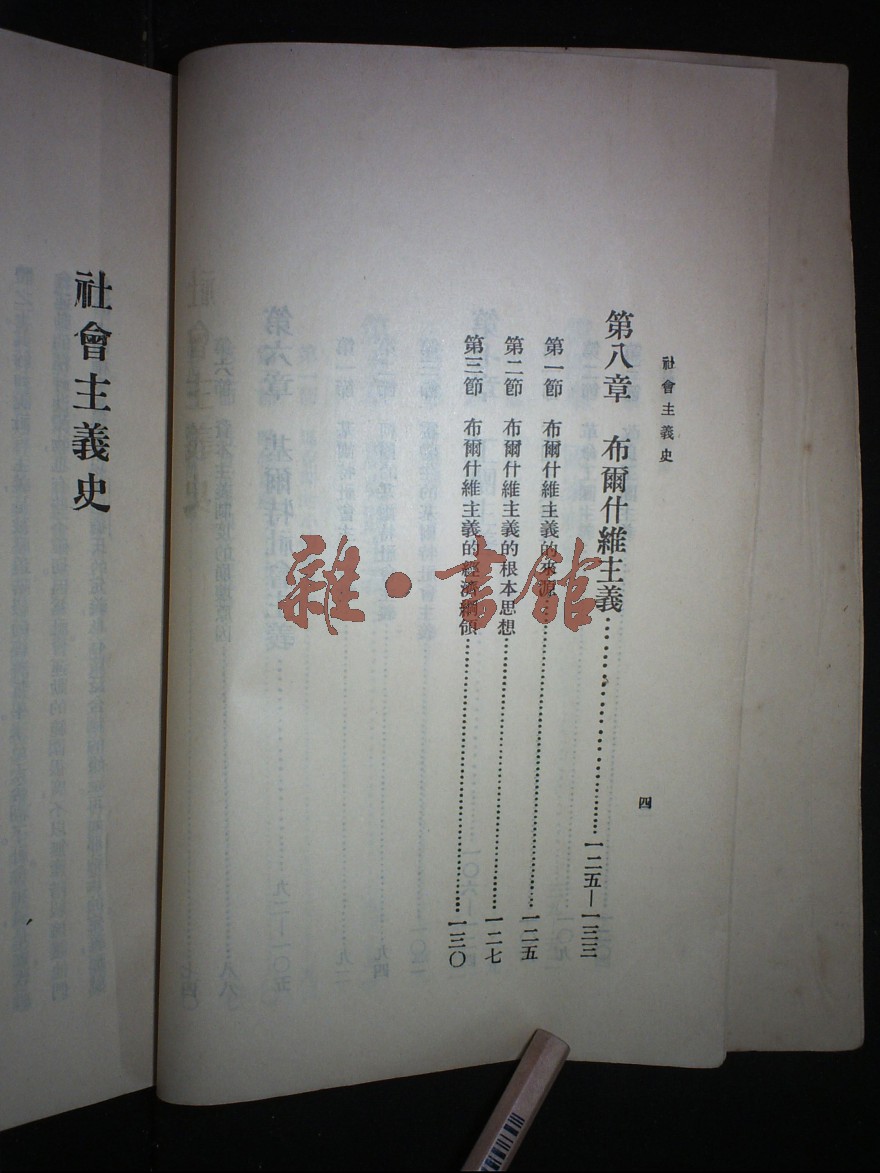 社會主義史
第八章 布爾什維主義……一二五—一三三
第一節 布爾什維主義的來源……一二五
第二節 布爾什維主義的根本思想……一二七
第三節 布爾什維主義的經濟綱領……一三〇
四
社會主義史
雜·書館